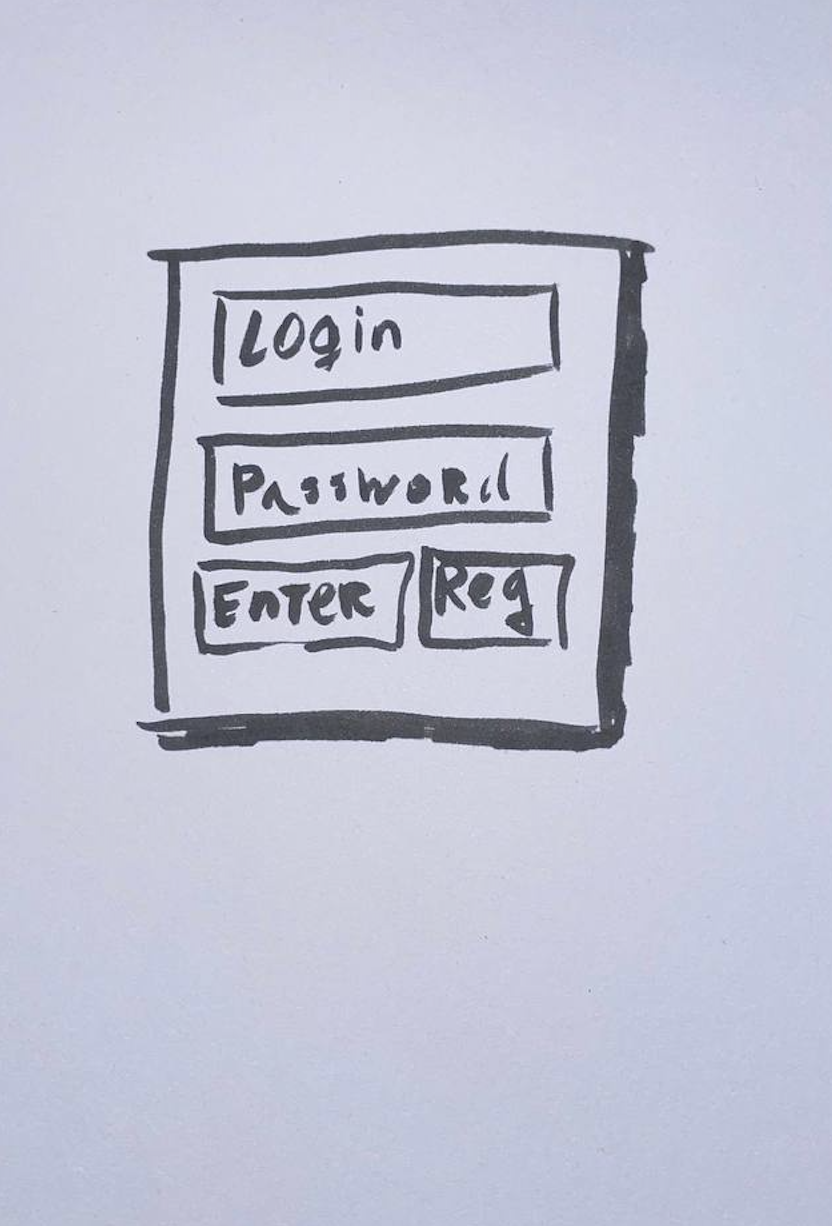 Login
Password
Enter Reg